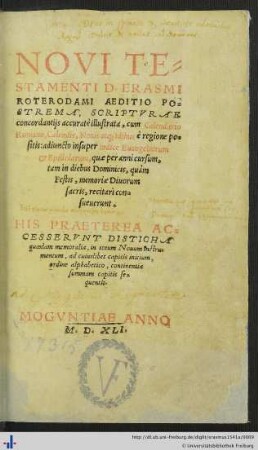 NOVI TE-
STAMENTI D. ERASMI
ROTERODAMI AEDITIO PO-
STREMA, SCRIPTVRAE
concordantijs accuratè illustrata, cum Calendario
Romano, Calendis, Nonis atque Idibus è regione po-
sitis: adiuncto insuper indice Euangeliorum
& Epistolarum, quae per anni cursum,
tam in diebus Dominicis, quàm
Festis, memoriae Diuorum
sacris, recitari con-
sueuerunt.
HIS PRAETEREA AC-
CESSERVNT DISTICHA
quaedam memoralia, in totum Nouum Instru-
mentum, ad cuiuslibet capitis initium,
ordine alphabetico, continentia
summam capitis se-
quentis.
MOGVNTIAE ANNO
M. D. XLI.
VF
http://dl.ub.uni-freiburg.de/diglit/erasmus1541a/0009
© Universitätsbibliothek Freiburg